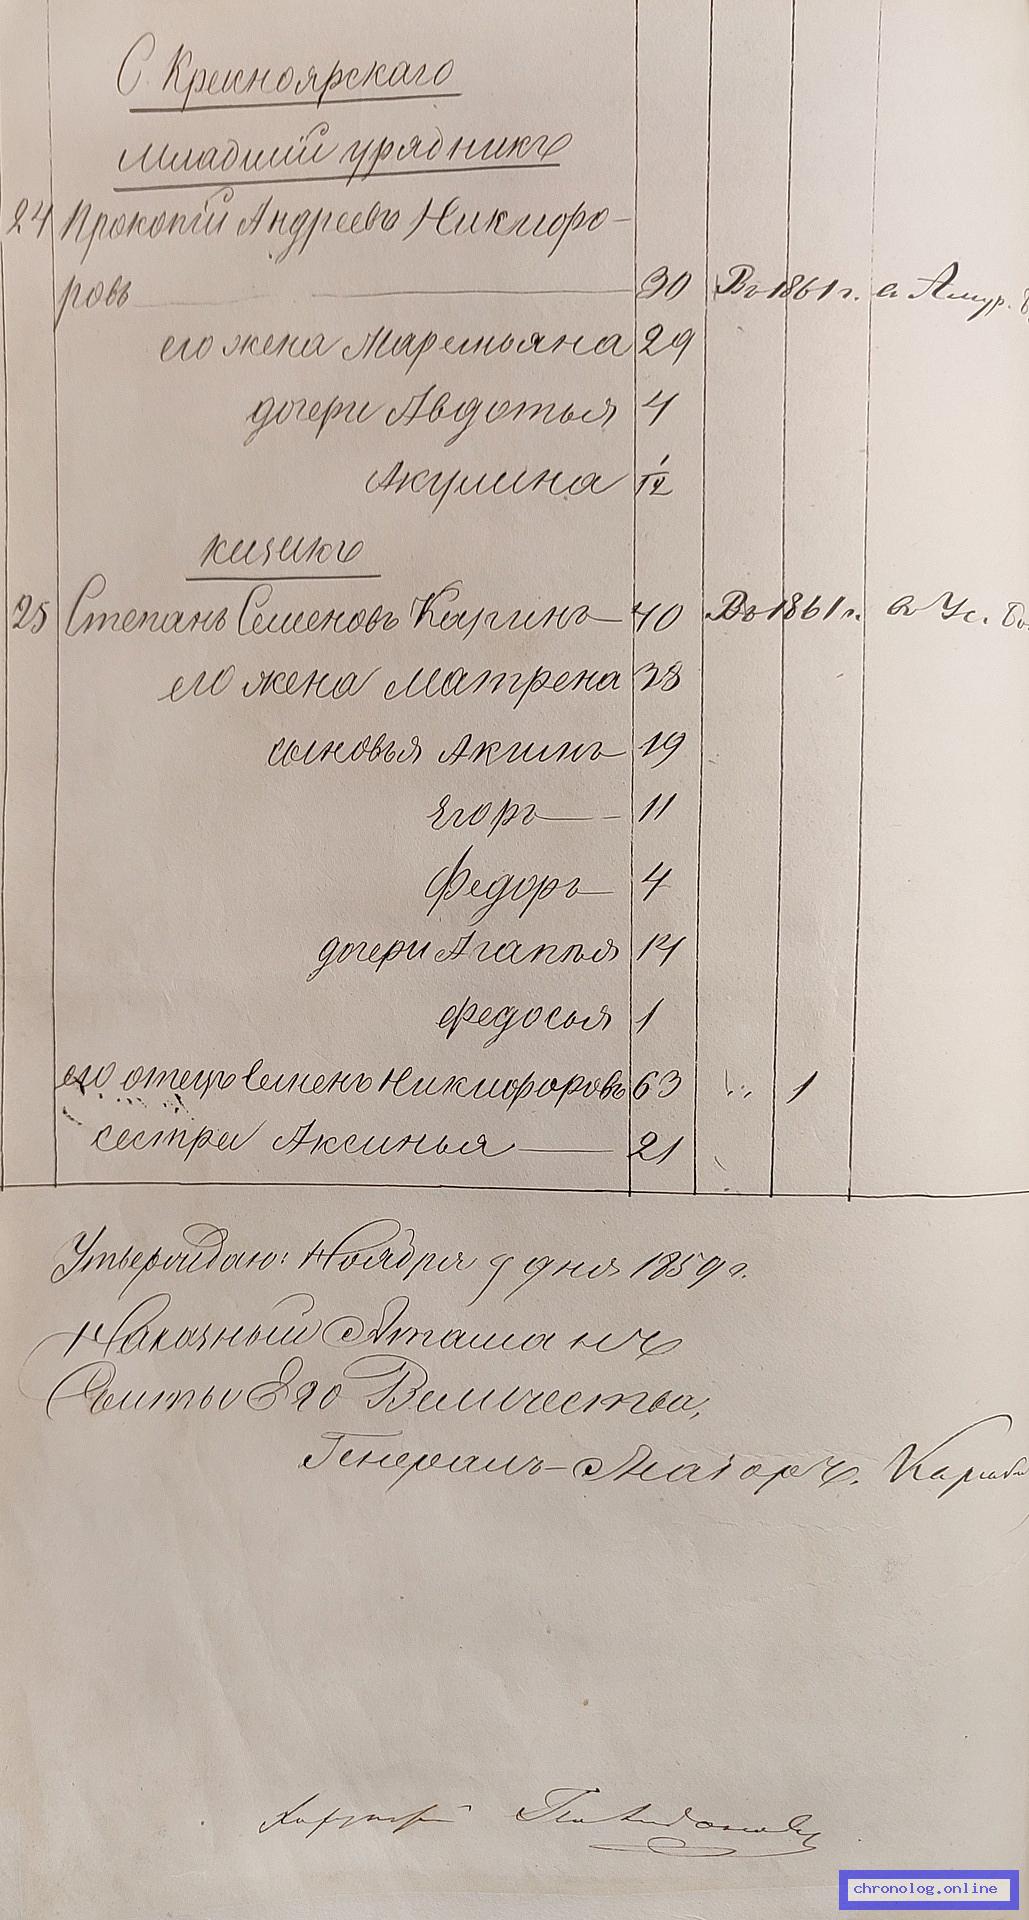 С. Красноярскаго
Младшій урядникъ
24 Прокопій Андреевъ Никифо-
ровъ 30 Въ 1861 г. въ Амур.
его жена Маремьяна 29
дочери Авдотья 4
Акулина 1/12
казакъ
25 Степанъ Семеновъ Каргинъ 40 Въ 1861 г. въ Ус.
его жена Матрена 38
сыновья Акимъ 19
Егоръ 11
Федоръ 4
дочери Агапья 14
Федосья 1
его отецъ Семенъ Никифоровъ 63 1
сестра Аксинья 21
Утверждаю: Ноября 9 дня 1859 г.
Наказный Атаманъ
Свиты Его Величества,
Генералъ-Маіоръ,
Хорунжій
chronolog.online